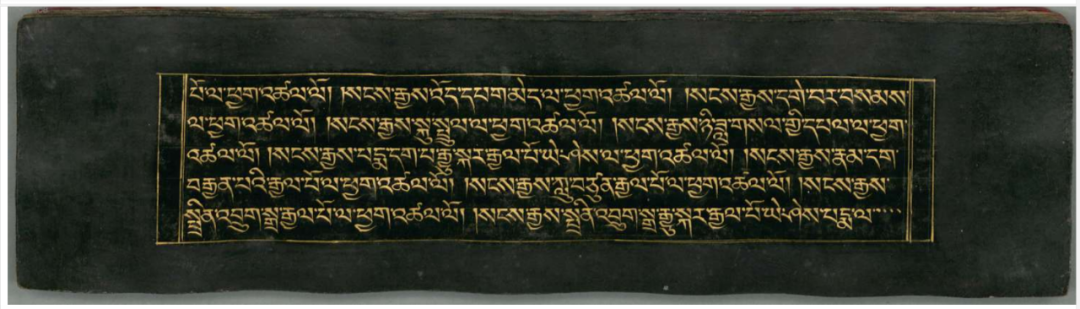 པོ་ལ་ཕྱག་འཚལ་ལོ། །སངས་རྒྱས་འོད་དཔག་མེད་ལ་ཕྱག་འཚལ་ལོ། །སངས་རྒྱས་དགེ་བར་བསམས་
ལ་ཕྱག་འཚལ་ལོ། །སངས་རྒྱས་སྐུ་སྤྲུལ་ལ་ཕྱག་འཚལ་ལོ། །སངས་རྒྱས་ཉི་ཟླ་གསལ་གྱི་དཔལ་ལ་ཕྱག་
འཚལ་ལོ། །སངས་རྒྱས་པདྨ་དག་པ་རྒྱུ་སྐར་རྒྱལ་པོ་ཡེ་ཤེས་ལ་ཕྱག་འཚལ་ལོ། །སངས་རྒྱས་རྣམ་དག་
བརྒྱན་པའི་རྒྱལ་པོ་ལ་ཕྱག་འཚལ་ལོ། །སངས་རྒྱས་ཀླུ་བཙུན་རྒྱལ་པོ་ལ་ཕྱག་འཚལ་ལོ། །སངས་རྒྱས་
སྤྲིན་འབྲུག་སྒྲ་རྒྱལ་པོ་ལ་ཕྱག་འཚལ་ལོ། །སངས་རྒྱས་སྤྲིན་འབྲུག་སྒྲ་རྒྱུ་སྐར་རྒྱལ་པོ་ཡེ་ཤེས་པདྨ་ལ་་་་